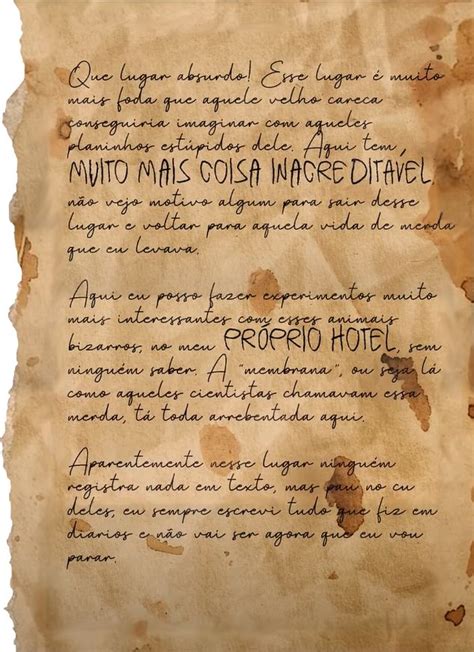 Que lugar absurdo! Esse lugar é muito
mais foda que aquele velho careca
conseguiria imaginar com aqueles
planinhos estúpidos dele. Aqui tem
MUITO MAIS COISA INACREDITÁVEL,
não vejo motivo algum para sair desse
lugar e voltar para aquela vida de merda
que eu levava.
Aqui eu posso fazer experimentos muito
mais interessantes com esses animais
bizarros, no meu PRÓPRIO HOTEL, sem
ninguém saber. A "membrana", ou seja lá
como aqueles cientistas chamavam essa
merda, tá toda arrebentada aqui.
Aparentemente nesse lugar ninguém
registra nada em texto, mas pau no cu
deles, eu sempre escrevi tudo que fiz em
diarios e não vai ser agora que eu vou
parar.